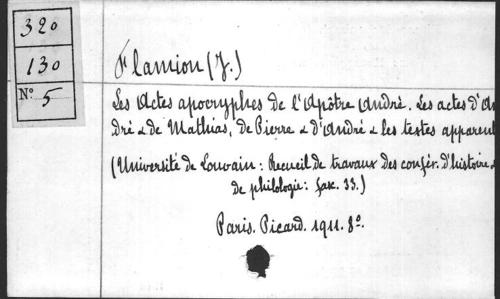 320
130
N° 5
Flamion (J.)
Les Actes apocryphes de l'Apôtre André. Les actes d'An
dré & de Mathias, de Pierre & d'André & les textes apparent
(Université de Louvain: Recueil de travaux des confér. d'histoire &
de philologie: fasc. 33.)
Paris. Picard. 1911. 8°.